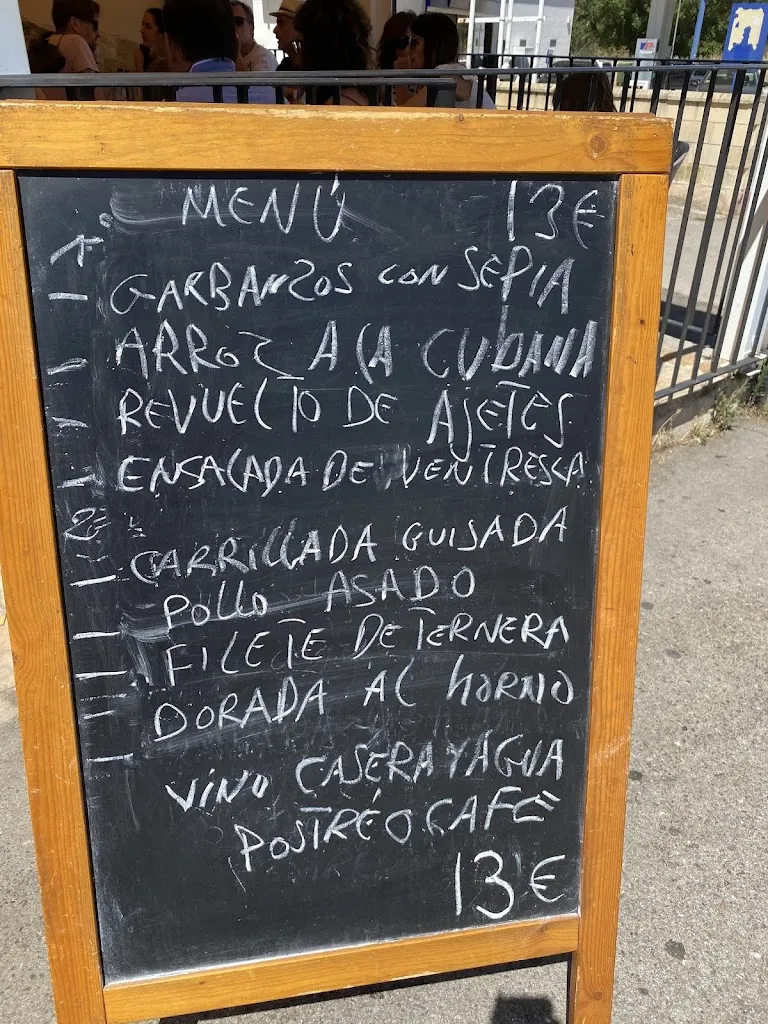 MENÚ 13€
1º
- GARBANZOS CON SEPIA
- ARROZ A LA CUBANA
- REVUELTO DE AJETES
- ENSALADA DE VENTRESCA
2º
- CARRILLADA GUISADA
- POLLO ASADO
- FILETE DE TERNERA
- DORADA AL HORNO
- VINO CASERA Y AGUA
POSTRE O CAFE
13€